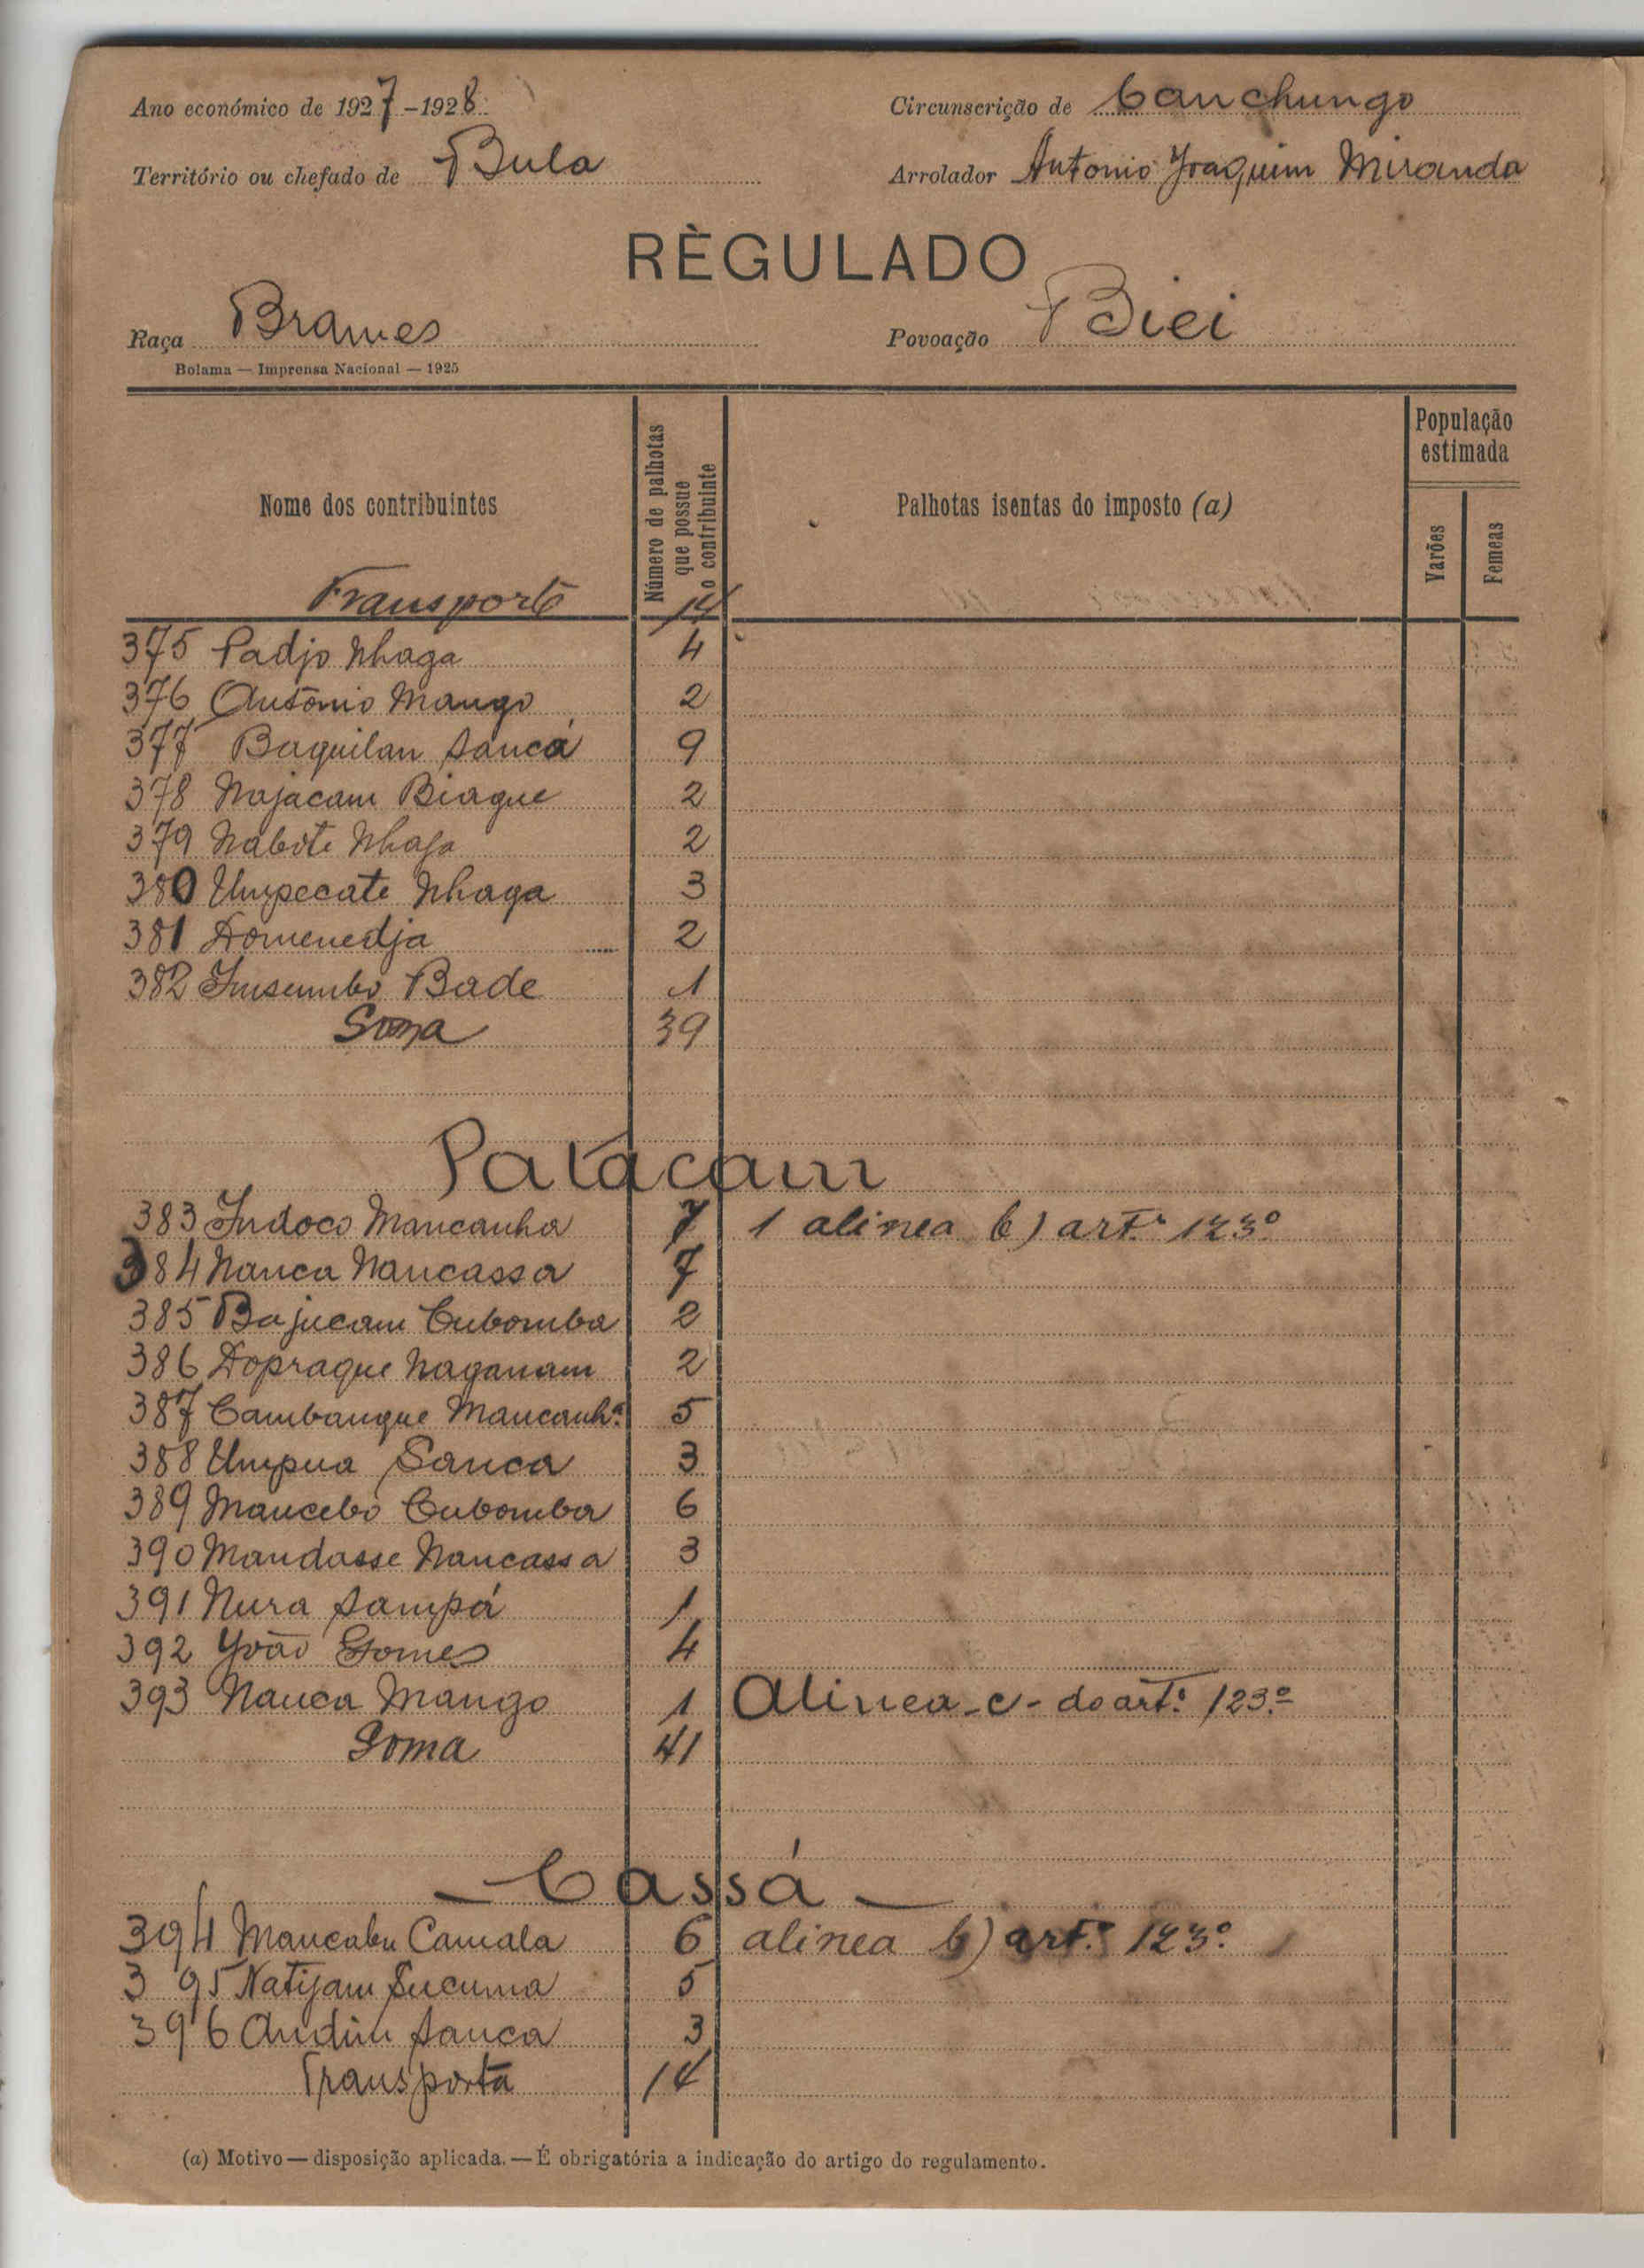 Ano económico de 1927-1928
Circunscrição de Canchungo
Território ou chefado de Bula
Arrolador Antonio Joaquim Miranda
RÈGULADO
Raça Brames
Povoação Biei
Bolama — Imprensa Nacional — 1925
Nome dos contribuintes
Número de palhotas que possue o contribuinte
Palhotas isentas do imposto (a)
População estimada
Varões
Femeas
Transporte 14
375 Padjo Nhaga 4
376 António Mango 2
377 Baquilan Sancá 9
378 Najacam Biague 2
379 Nabote Nhaga 2
380 Umpecate Nhaga 3
381 Domenedja 2
382 Insumbo Bade 1
Soma 39
Patacam
383 Indoco Mancanha 7 1 alinea b) art.º 123º
384 Nanca Nancassa 7
385 Bajucam Cubomba 2
386 Dopraque Naganam 2
387 Cambangue Mancanh.ª 5
388 Umpua Sanca 3
389 Mancebo Cubomba 6
390 Mandasse Nancassa 3
391 Nura Sampá 1
392 João Gomes 4
393 Nanca Mango 1 Alinea - c - do art.º 123.º
Soma 41
— Cassá —
394 Mancabu Camala 6 alinea b) art.º 123º 1
395 Natijam Sucuma 5
396 Andim Sanca 3
Transporta 14
(a) Motivo — disposição aplicada. — É obrigatória a indicação do artigo do regulamento.